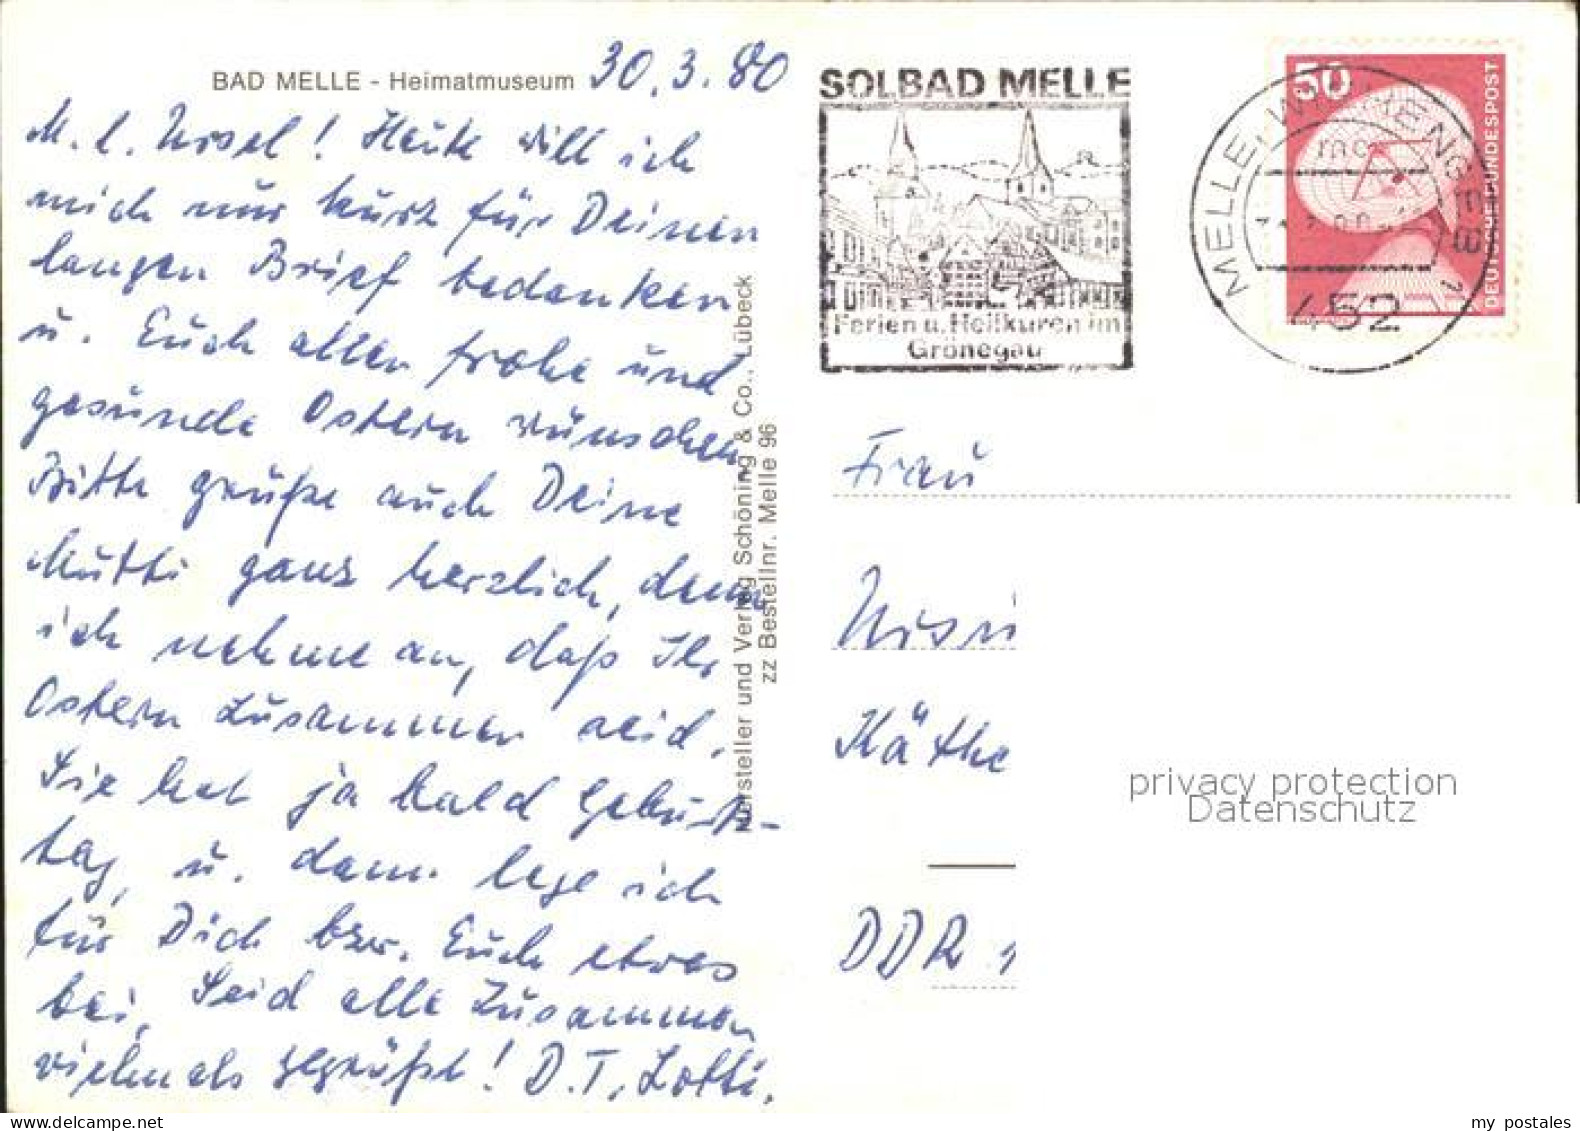 BAD MELLE - Heimatmuseum 30.3.80
M. l. Ursel! Heute will ich
mich nur kurz für Deinen
langen Brief bedanken
u. Euch allen frohe und
gesunde Ostern wünschen.
Bitte grüße auch Deine
Mutti ganz herzlich, denn
ich nehme an, daß Ihr
Ostern zusammen seid.
Sie hat ja bald Geburts-
tag, u. dann lege ich
für Dich bzw. Euch etwas
bei. Seid alle zusammen
vielmals gegrüßt! D. T. Lotti.
Hersteller und Verlag Schöning & Co., Lübeck
zz Bestellnr. Melle 96
SOLBAD MELLE
Ferien u. Heilkuren im
Grönegau
MELLE
452
50
DEUTSCHE BUNDESPOST
Frau
Käthe
DDR
privacy protection
Datenschutz
my postales